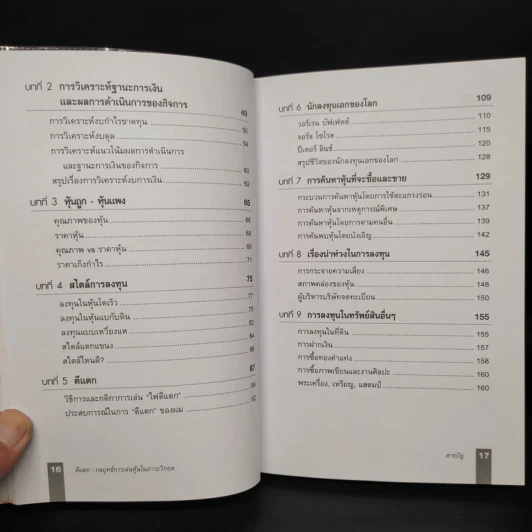 บทที่ 2 การวิเคราะห์ฐานะการเงิน
และผลการดำเนินการของกิจการ 49
การวิเคราะห์งบกำไรขาดทุน 50
การวิเคราะห์งบดุล 54
การวิเคราะห์แนวโน้มผลการดำเนินการ
และฐานะการเงินของกิจการ 60
สรุปเรื่องการวิเคราะห์งบการเงิน 62
บทที่ 3 หุ้นถูก - หุ้นแพง 65
คุณภาพของหุ้น 66
ราคาหุ้น 68
คุณภาพ vs ราคาหุ้น 69
ราคาเก็งกำไร 71
บทที่ 4 สไตล์การลงทุน 75
ลงทุนในหุ้นโตเร็ว 77
ลงทุนในหุ้นแบกับดิน 80
ลงทุนแบบเหวี่ยงแห 82
สไตล์แตกแขนง 84
สไตล์ไหนดี? 86
บทที่ 5 ตีแตก 87
วิธีการและกติกาการเล่น "ไพ่ตีแตก" 88
ประสบการณ์ในการ "ตีแตก" ของผม 92
16 ตีแตก : กลยุทธ์การเล่นหุ้นในภาวะวิกฤต
บทที่ 6 นักลงทุนเอกของโลก 109
วอร์เรน บัฟเฟตต์ 110
จอร์จ โซรอส 115
ปีเตอร์ ลินช์ 120
สรุปชีวิตของนักลงทุนเอกของโลก 128
บทที่ 7 การค้นหาหุ้นที่จะซื้อและขาย 129
กระบวนการค้นหาหุ้นโดยการใช้ตะแกรงร่อน 131
การค้นหาหุ้นจากเหตุการณ์พิเศษ 137
การค้นหาหุ้นโดยการตามคนอื่น 139
การค้นพบหุ้นโดยบังเอิญ 142
บทที่ 8 เรื่องน่าห่วงในการลงทุน 145
การกระจายความเสี่ยง 146
สภาพคล่องของหุ้น 148
ผู้บริหารบริษัทจดทะเบียน 150
บทที่ 9 การลงทุนในทรัพย์สินอื่นๆ 155
การลงทุนในที่ดิน 155
การฝากเงิน 157
การซื้อทองคำแท่ง 158
การซื้อภาพเขียนและงานศิลปะ 160
พระเครื่อง, เหรียญ, แสตมป์ 160
สารบัญ 17